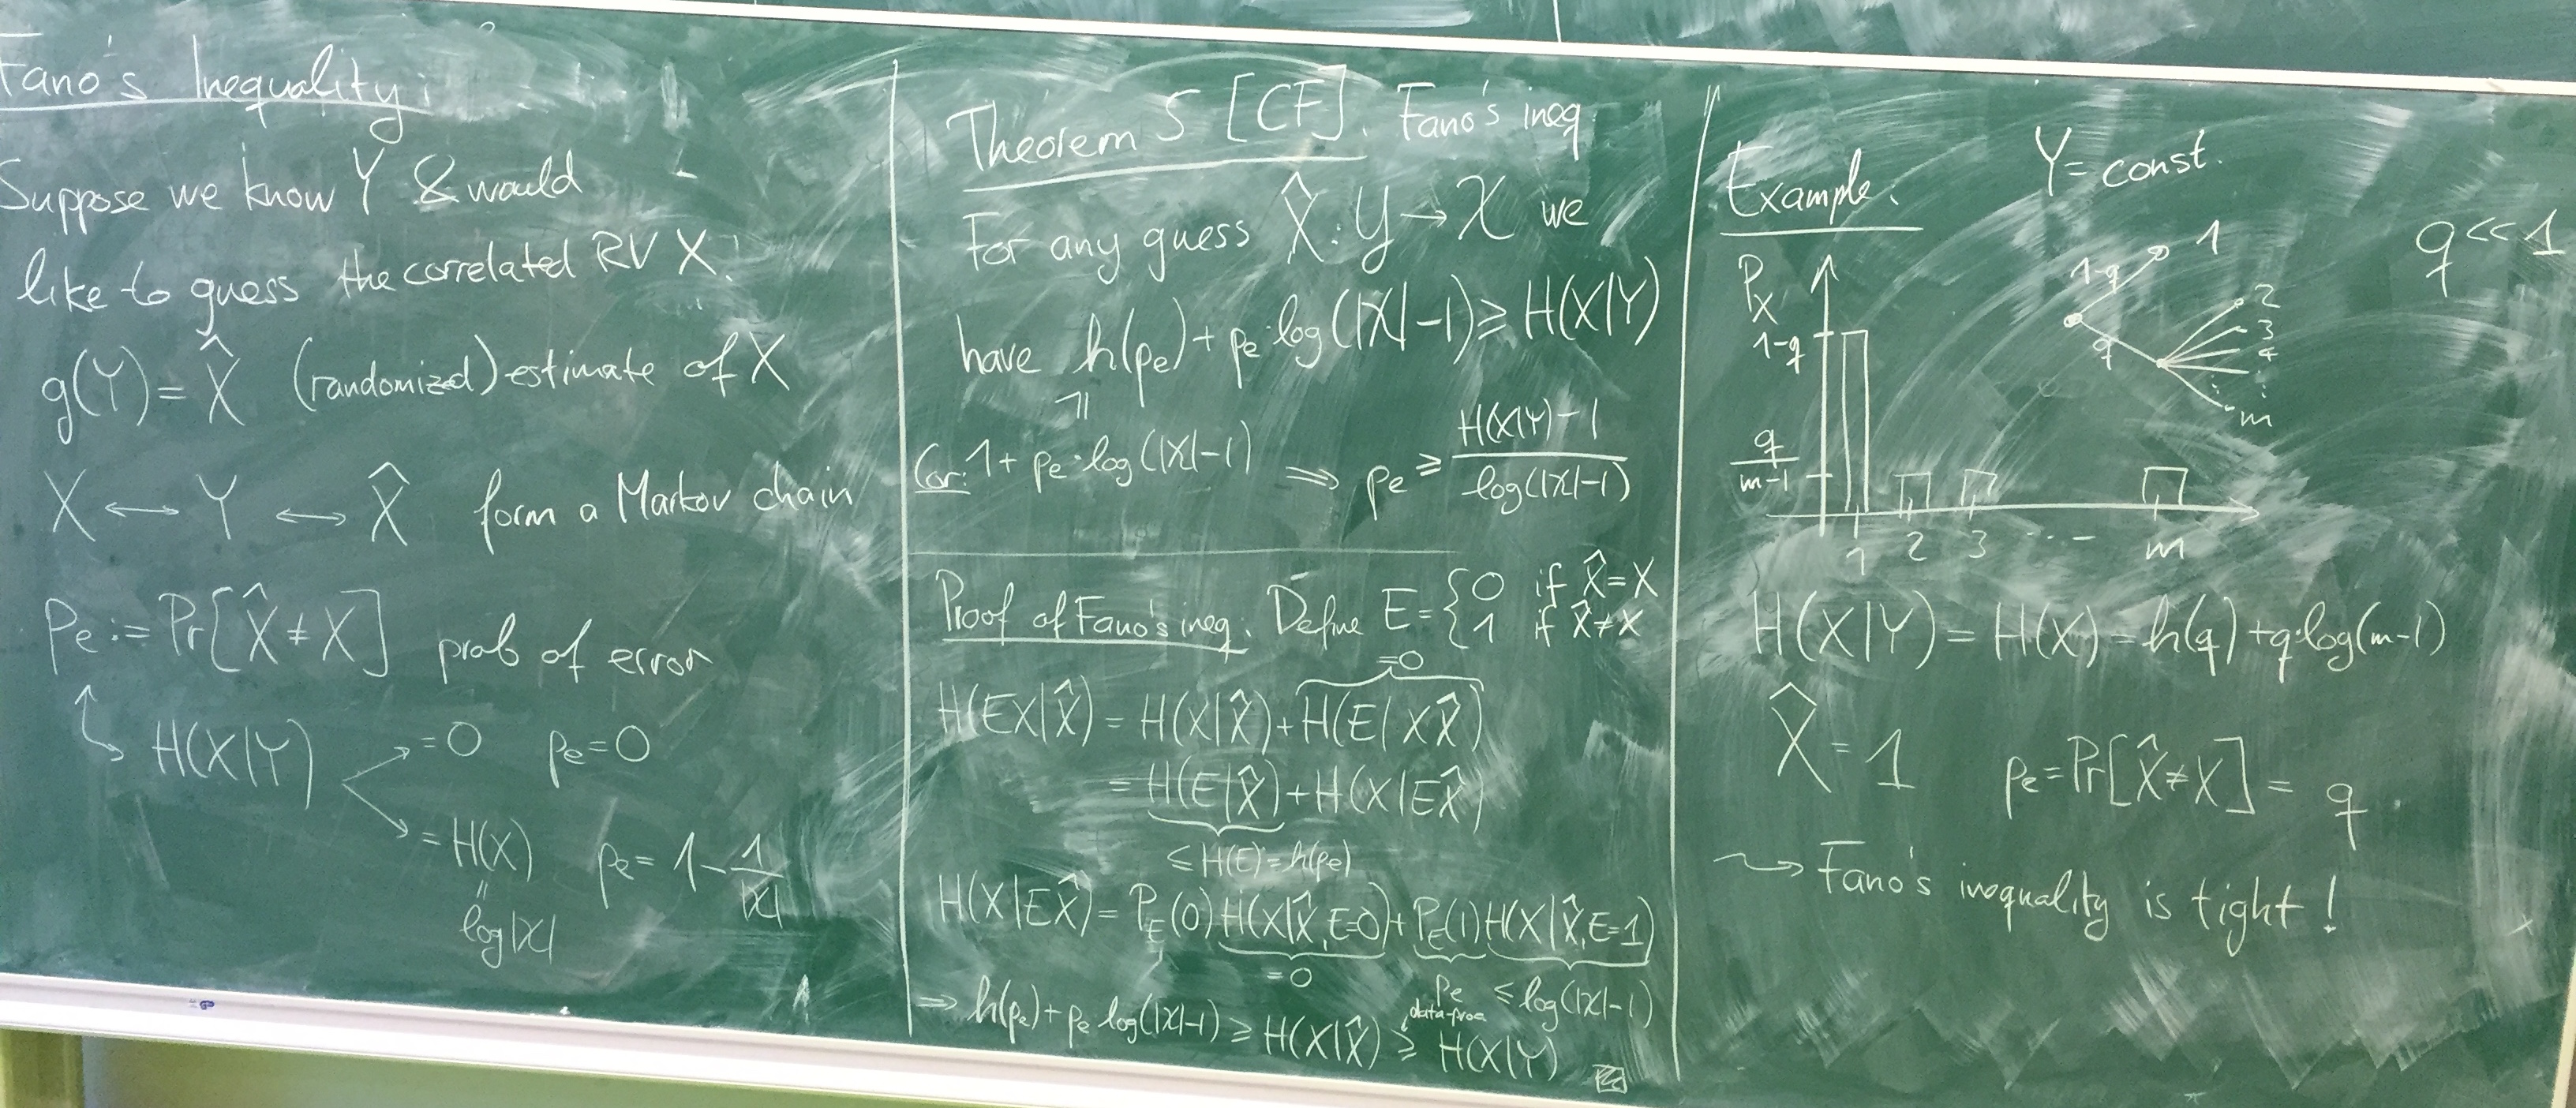 Fano's Inequality:
Suppose we know Y & would
like to guess the correlated RV X.
g(Y) = X̂ (randomized) estimate of X
X ↔ Y ↔ X̂ form a Markov chain
pe := Pr[X̂ ≠ X] prob of error
H(X|Y) = 0 pe = 0
= H(X) pe = 1 - 1/|𝒳|
= log|𝒳|
Theorem 5 [CF]. Fano's ineq
For any guess X̂: 𝒴 → 𝒳 we
have h(pe) + pe·log(|𝒳|-1) ≥ H(X|Y)
Cor: 1 + pe·log(|𝒳|-1) ⟹ pe ≥ (H(X|Y) - 1)/log(|𝒳|-1)
Proof of Fano's ineq. Define E = { 0 if X̂ = X
1 if X̂ ≠ X
=0
H(EX|X̂) = H(X|X̂) + H(E|XX̂)
= H(E|X̂) + H(X|EX̂)
≤ H(E) = h(pe)
H(X|EX̂) = P_E(0) H(X|X̂,E=0) + P_E(1) H(X|X̂,E=1)
= 0 pe ≤ log(|𝒳|-1)
data-proc
⟹ h(pe) + pe log(|𝒳|-1) ≥ H(X|X̂) ≥ H(X|Y)
Example. Y = const.
q << 1
P_X
1-q
q/(m-1)
1 2 3 ... m
1-q 1
q 2
3
4
⋮
m
H(X|Y) = H(X) = h(q) + q·log(m-1)
X̂ = 1 pe = Pr[X̂ ≠ X] = q
⇝ Fano's inequality is tight!